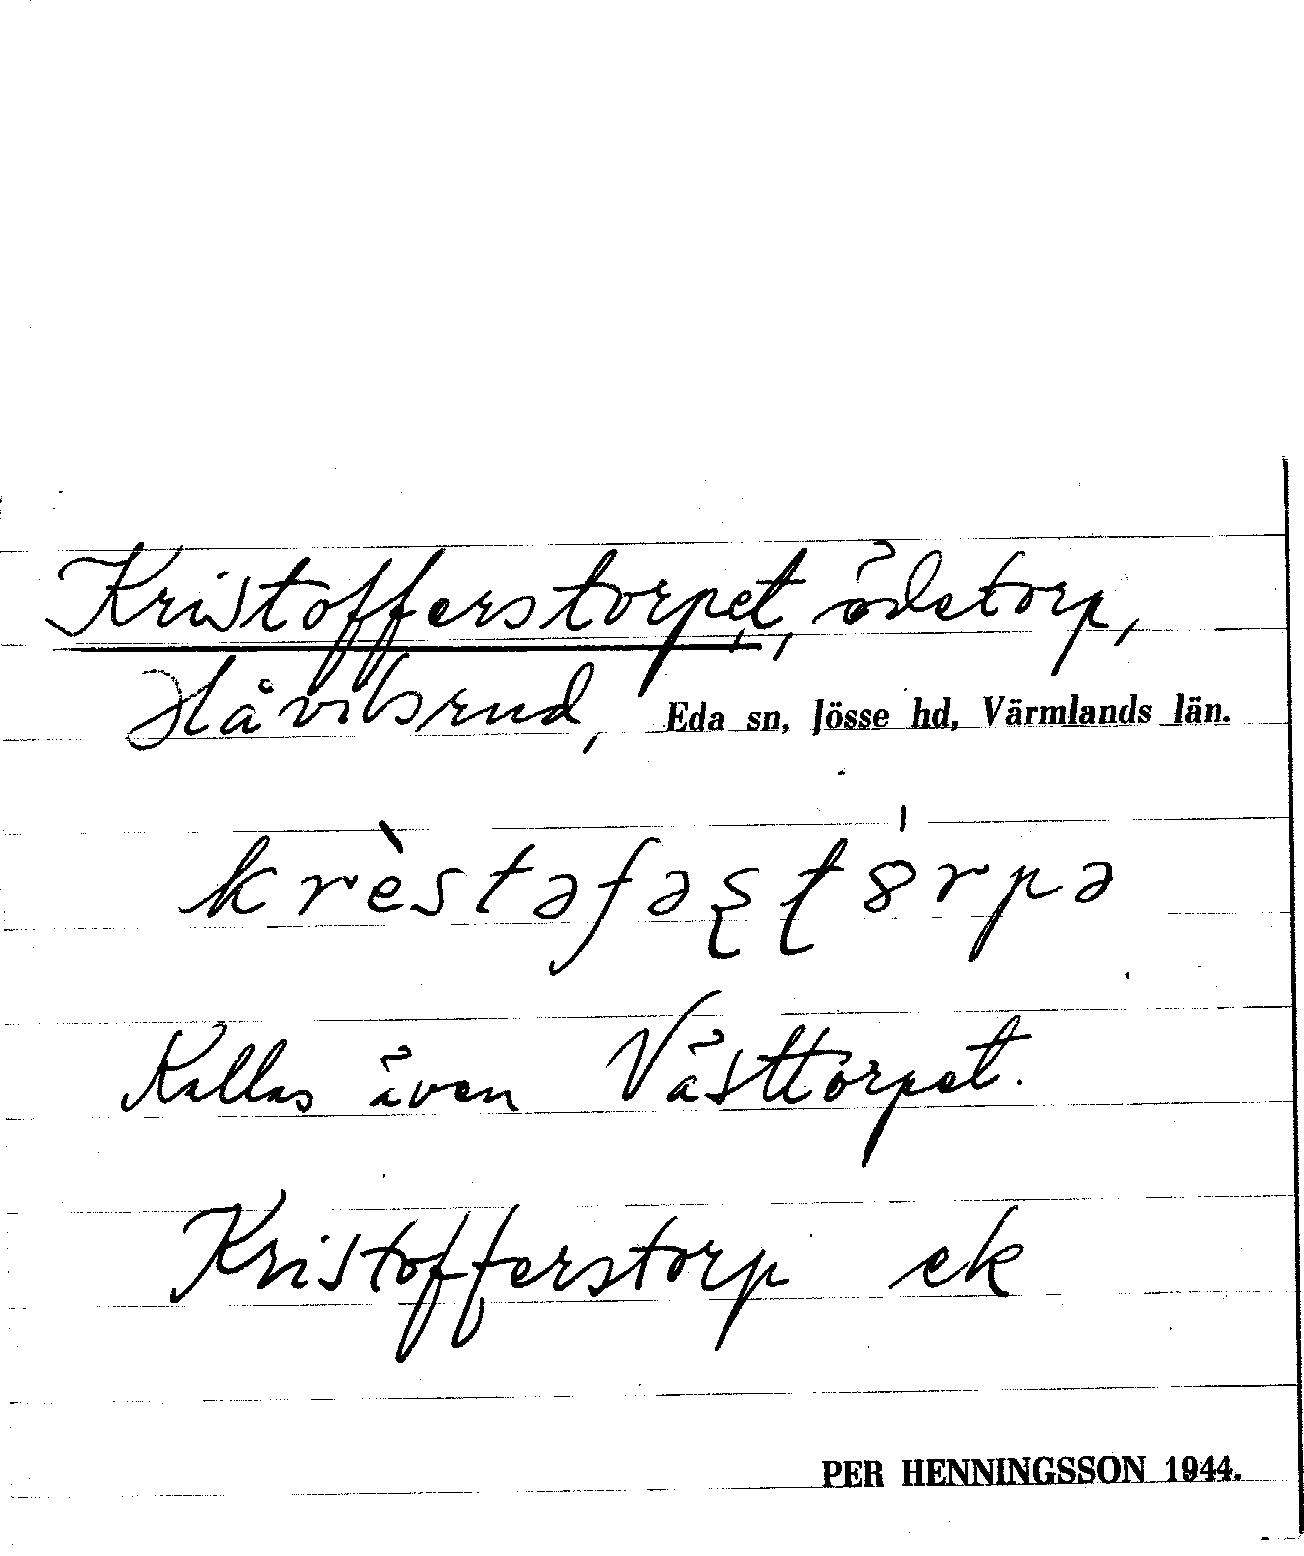 Kristofferstorpet, ödetorp,
Håvilsrud, Eda sn, Jösse hd, Värmlands län.
krèstəfəʂʈ8́rpə
Kallas även Västtorpet.
Kristofferstorp ek
PER HENNINGSSON 1944.